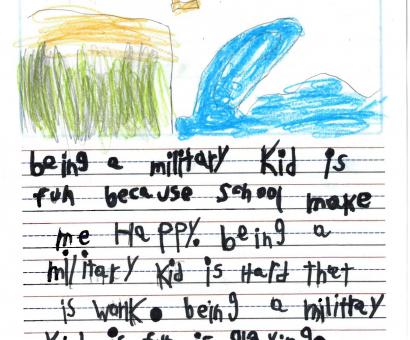 being a military Kid is
fun because school make
me Happy. being a
military Kid is Hard that
is work. being a military
Kid is fun is